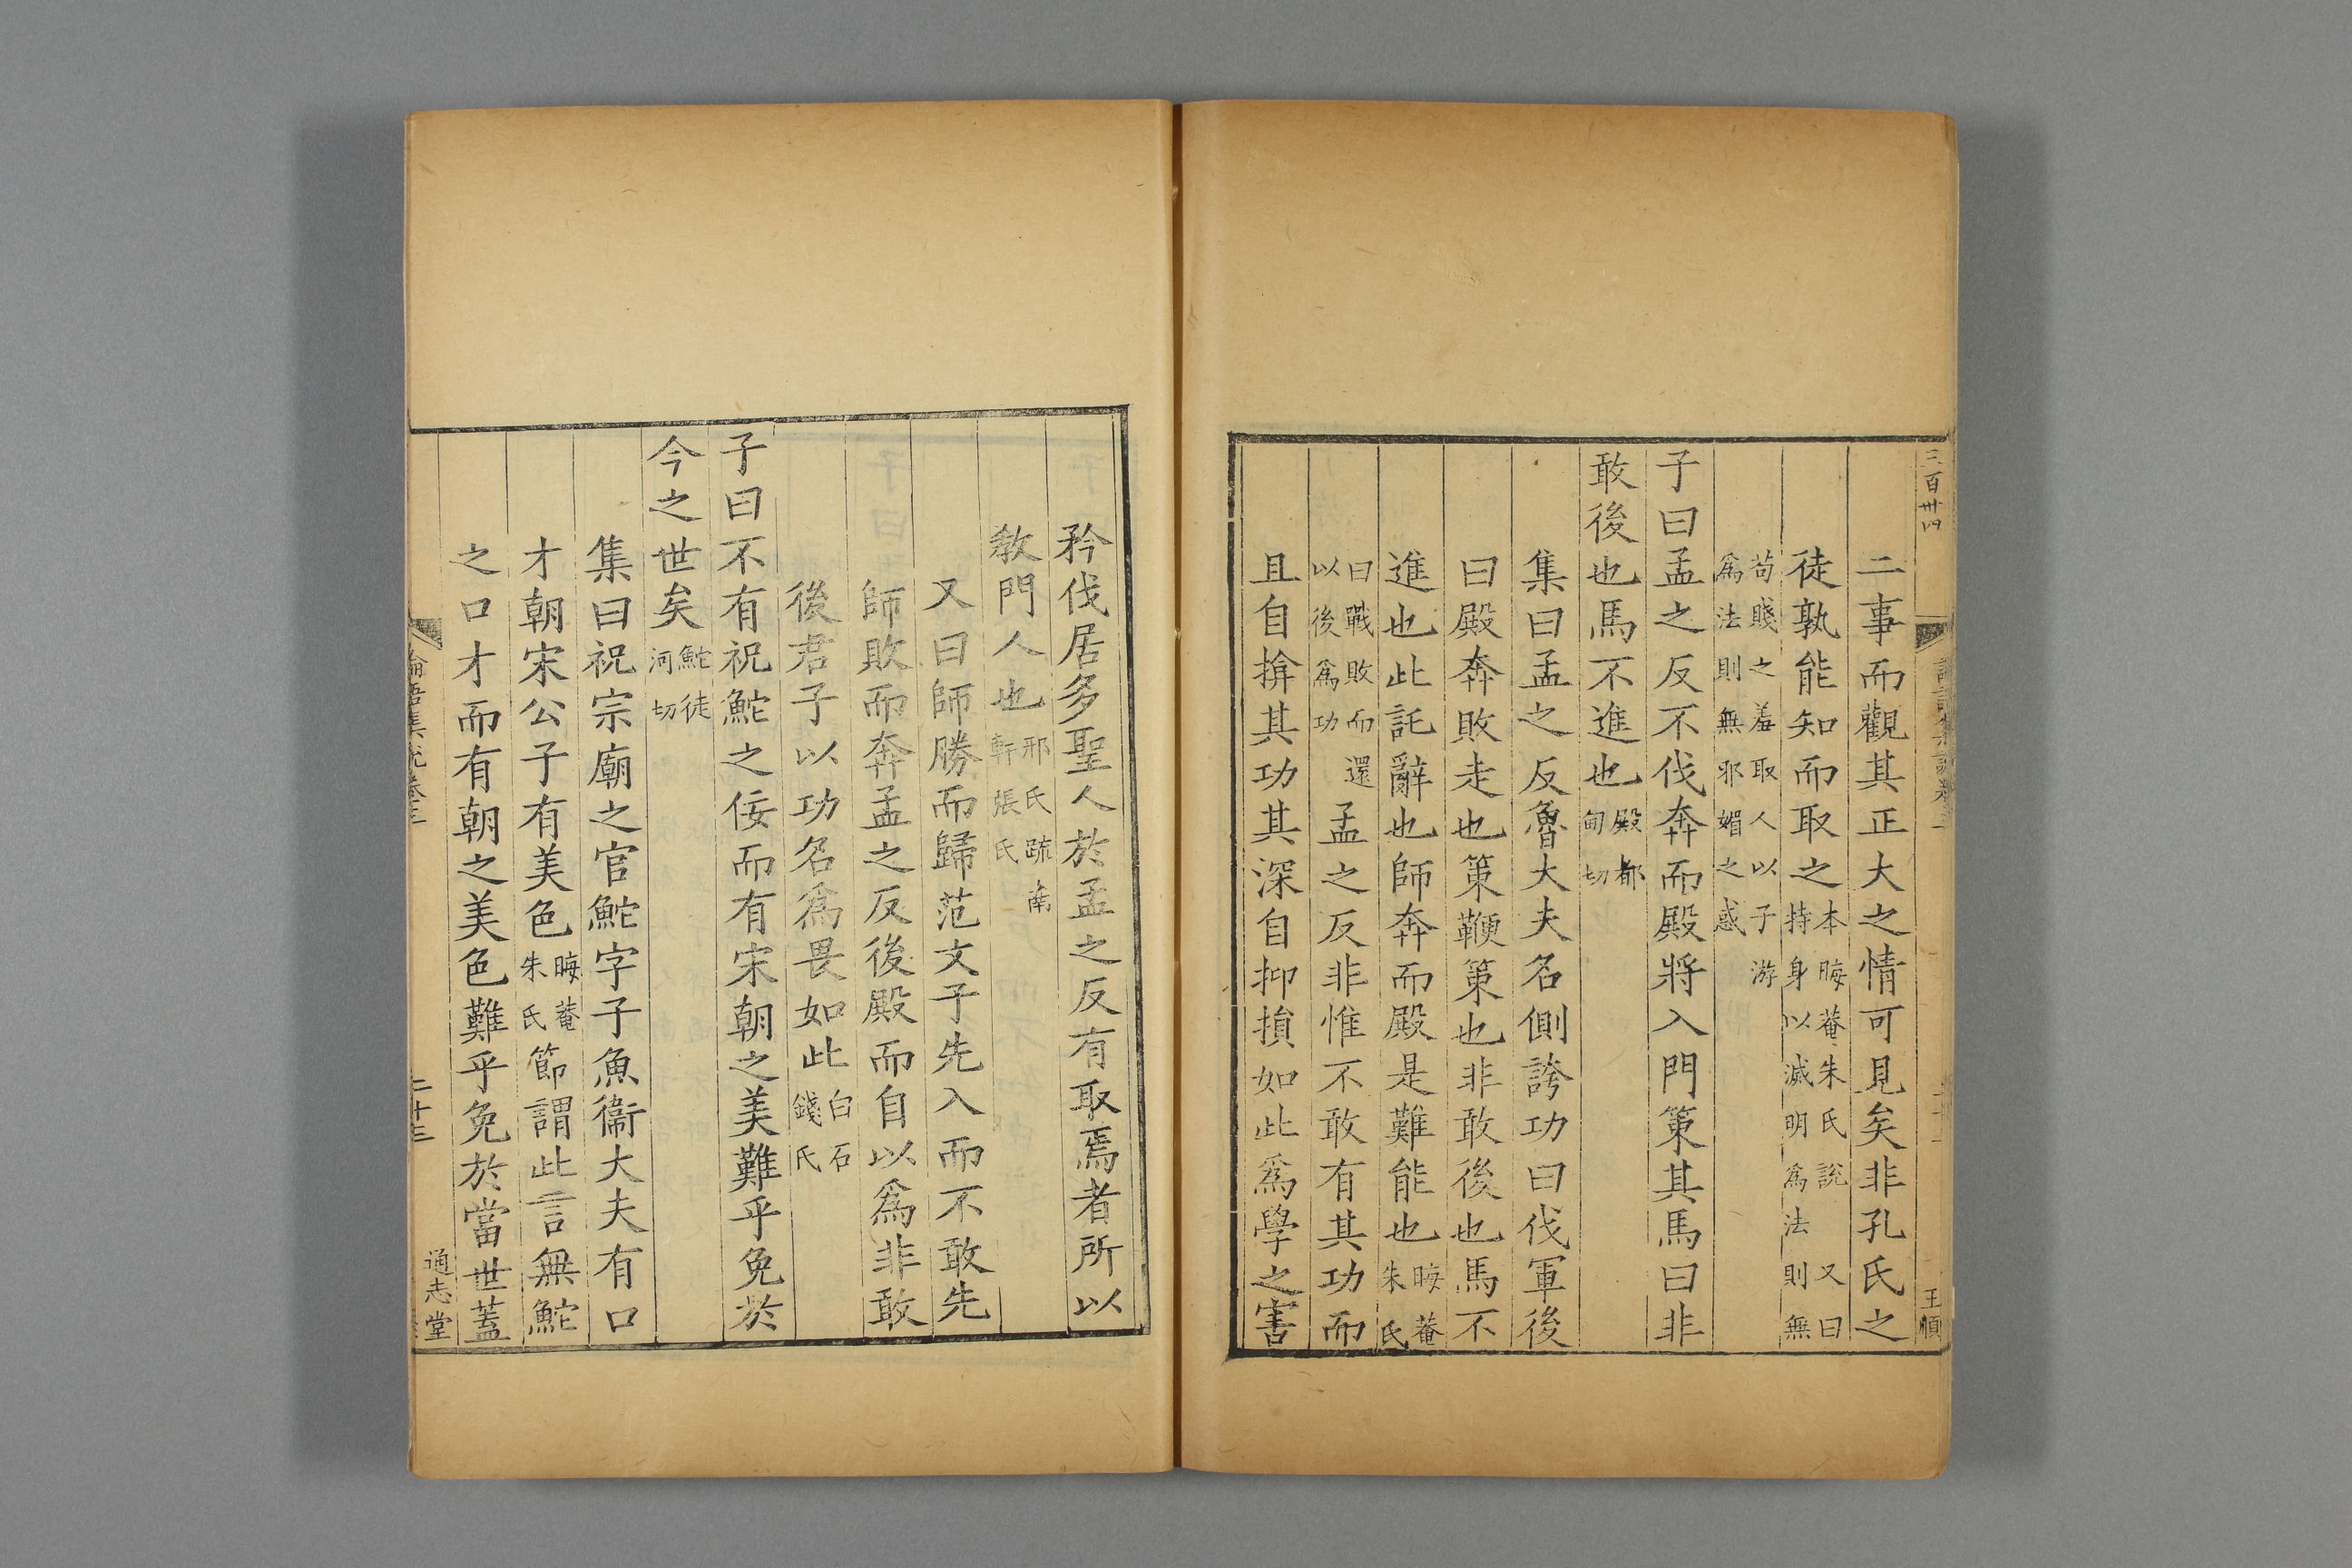 三百卅四
王順
二事而觀其正大之情可見矣非孔氏之
徒孰能知而取之本晦菴朱氏說 又曰持身以滅明爲法則無
苟賤之羞取人以子游爲法則無邪媚之惑
子曰孟之反不伐奔而殿將入門策其馬曰非
敢後也馬不進也殿都甸切
集曰孟之反魯大夫名側誇功曰伐軍後
曰殿奔敗走也策鞭策也非敢後也馬不
進也此託辭也師奔而殿是難能也晦菴朱氏
曰戰敗而還以後爲功孟之反非惟不敢有其功而
且自揜其功其深自抑損如此爲學之害
矜伐居多聖人於孟之反有取焉者所以
教門人也邢氏疏南軒張氏
又曰師勝而歸范文子先入而不敢先
師敗而奔孟之反後殿而自以爲非敢
後君子以功名爲畏如此白石錢氏
子曰不有祝鮀之佞而有宋朝之美難乎免於
今之世矣鮀徒河切
集曰祝宗廟之官鮀字子魚衞大夫有口
才朝宋公子有美色晦菴朱氏節謂此言無鮀
之口才而有朝之美色難乎免於當世蓋
論語集說卷三
二十三
通志堂